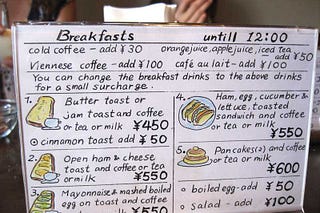 Breakfasts untill 12:00
cold coffee - add ¥30 orange juice, apple juice, iced tea
add ¥50
Viennese coffee - add ¥100 café au lait - add ¥100
You can change the breakfast drinks to the above drinks
for a small surcharge.
1. Butter toast or
jam toast and coffee
or tea or milk ¥450
⊙ cinnamon toast add ¥50
2. Open ham & cheese
toast and coffee or tea
or milk ¥550
3. Mayonnaise & mashed boiled
egg on toast and coffee
or tea or milk ¥550
4. Ham, egg, cucumber &
lettuce, toasted
sandwich and coffee
or tea or milk
¥550
5. Pancakes(2) and coffee
or tea or milk
¥600
○ boiled egg - add ¥50
○ salad - add ¥100